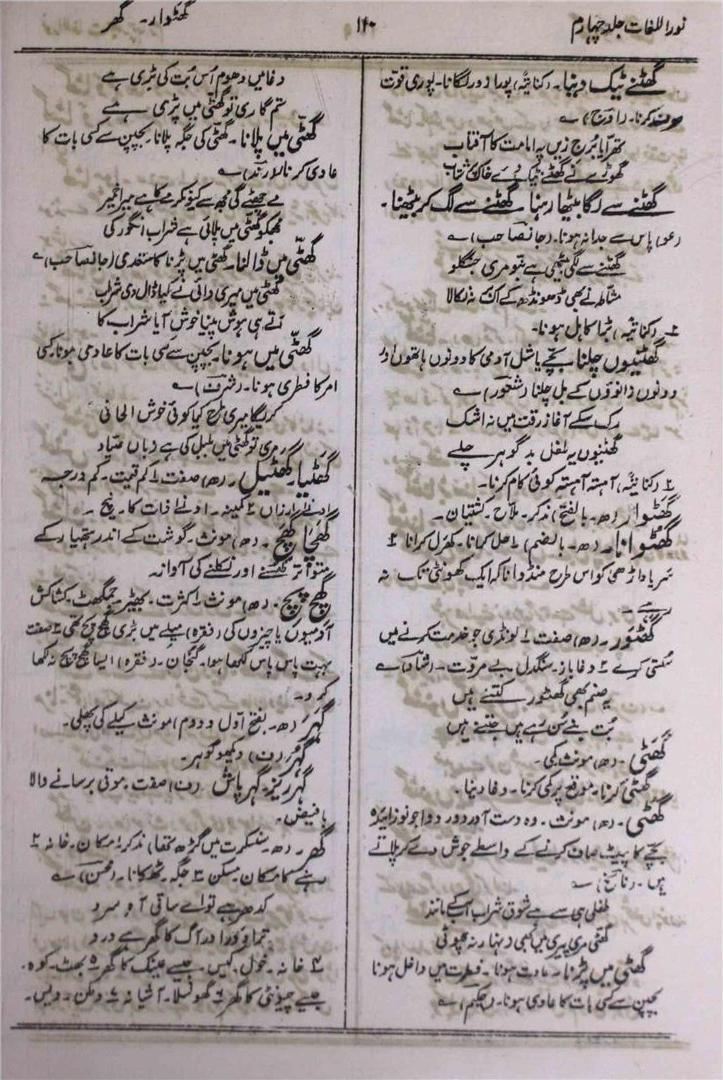 نور اللغات جلد چہارم
۱۴۰
گھٹوار۔ گھر
گھٹنے ٹیک دینا۔ (کنایتہً) پورا زور لگانا۔ پوری قوت
صرف کرنا۔ (اوج) ؎
تھرآیا برج زیں پہ امامت کا آفتاب
گھوڑے نے گھٹنے ٹیک دئے خاک پر شتاب
گھٹنے سے لگا بیٹھا رہنا۔ گھٹنے سے لگ کر بیٹھنا۔
(عو) پاس سے جدا نہ ہونا۔ (جانصاحب) ؎
گھٹنے سے لگی بیٹھی ہے
مشاطہ نے بھی ڈھونڈھ کے اک نہ نکالا
۲۔ (کنایتہً) بڑا کاہل ہونا۔
گھٹنیوں چلنا بچے یا شل آدمی کا دونوں ہاتھوں اور
دونوں زانوؤں کے بل چلنا (شعور) ؎
رک سکے آغاز رقت میں نہ اشک
گھٹنیوں یہ طفل بد گوہر چلے
۲ (کنایتہً) آہستہ آہستہ کوئی کام کرنا۔
گھٹوار (ھ۔ بالفتح) مذکر۔ ملاح۔ کشتیبان۔
گھٹوانا۔ (ھ۔ بالضم) حل کرانا۔ کھرل کرانا ۲
سر یا داڑھی کو اس طرح منڈوانا کہ ایک کھونٹی تک نہ
رہے۔
گھٹور۔ (ھ) صفت ۱ لونڈی جو خدمت کرنے میں
سُستی کرے ۲ دغا باز۔ سنگدل بے مروت۔ (شاد) ؎
یہ صنم بھی گھٹور کتنے ہیں
بُت بنے سُن رہے ہیں جتنے ہیں
گھٹی۔ (ھ) مونث کمی۔
گھٹی کرنا۔ موقع پر کمی کرنا۔ دغا دینا۔
گھٹّی۔ (ھ) مونث۔ وہ دست آور دوا جو نوزائیدہ
بچے کا پیٹ صاف کرنے کے واسطے جوش دے کر پلاتے
ہیں۔ (ناسخ) ؎
طفلی ہی سے ہے شوق شراب اس کے مانند
گھٹی مری پیری میں کبھی دینہار نہ چھوٹی
گھٹی میں پڑنا۔ عادت ہونا۔ فطرت میں داخل ہونا
بچپن سے کسی بات کا عادی ہونا۔ (حکیم) ؎
دغا میں دھوم اُس بُت کی پڑی ہے
ستم گاری تو گھٹی میں پڑی ہے
گھٹّی میں پلانا۔ گھٹی کی جگہ پلانا۔ بچپن سے کسی بات کا
عادی کرنا۔ (رند) ؎
مے چھٹے گی مجھ سے کیونکر مے کا ہے میرا خمیر
مجکو گھٹی میں پلائی ہے شراب انگور کی
گھٹّی میں ڈالنا۔ گھٹی میں پڑنا کا متعدی (جانصاحب) ؎
گھٹی میں میری دائی نے کیا ڈال دی شراب
آتے ہی ہوش پینا خوش آیا شراب کا
گھٹّی میں ہونا۔ بچپن سے کسی بات کا عادی ہونا۔ کسی
امر کا فطری ہونا۔ (شرف) ؎
کریگا میری طرح کیا کوئی خوش الحانی
مری تو گھٹی میں بلبل کی ہے زباں صیاد
گھٹیا۔ گھٹیل۔ (ھ) صفت ۱ کم قیمت۔ کم درجہ
ادنےٰ ارزاں ۲ کمینہ۔ ادنےٰ ذات کا۔ نیچ۔
گھچا گھچ۔ (ھ) مونث۔ گوشت کے اندر ہتھیار کے
متواتر گھسنے اور نکلنے کی آواز۔
گھچ پچ۔ (ھ) مونث ۱ کثرت۔ بھیڑ۔ جمگھٹ۔ کشاکش
آدمیوں یا چیزوں کی (فقرہ) میلے میں بڑی گھچ پچ تھی ۲ صفت
بہت پاس پاس لکھا ہوا۔ گنجان۔ (فقرہ) ایسا گھچ پچ نہ لکھا
کرو۔
گہر (ھ۔ بفتح اول و دوم) مونث کیلے کی پھلی۔
گُہر (ف) دیکھو گوہر۔
گہر ریز۔ گہر پاش (ف) صفت۔ موتی برسانے والا
بافیض۔
گھر۔ (ھ۔ سنسکرت میں گرھ تھا) مذکر ۱ مکان۔ خانہ ۲
رہنے کا مکان۔ مسکن ۳ جگہ۔ ٹھکانا۔ (محسن) ؎
کدھر ہے تو اے ساقی آہ سرد
ترا دَور اور آگ کا گھر ہے درد
۴ خانہ۔ خول۔ کیس۔ جیسے عینک کا گھر ۵ بھٹ۔ کوہ۔
جیسے چیونٹی کا گھر ۶ گھونسلا۔ آشیانہ ۷ وطن۔ دیس۔